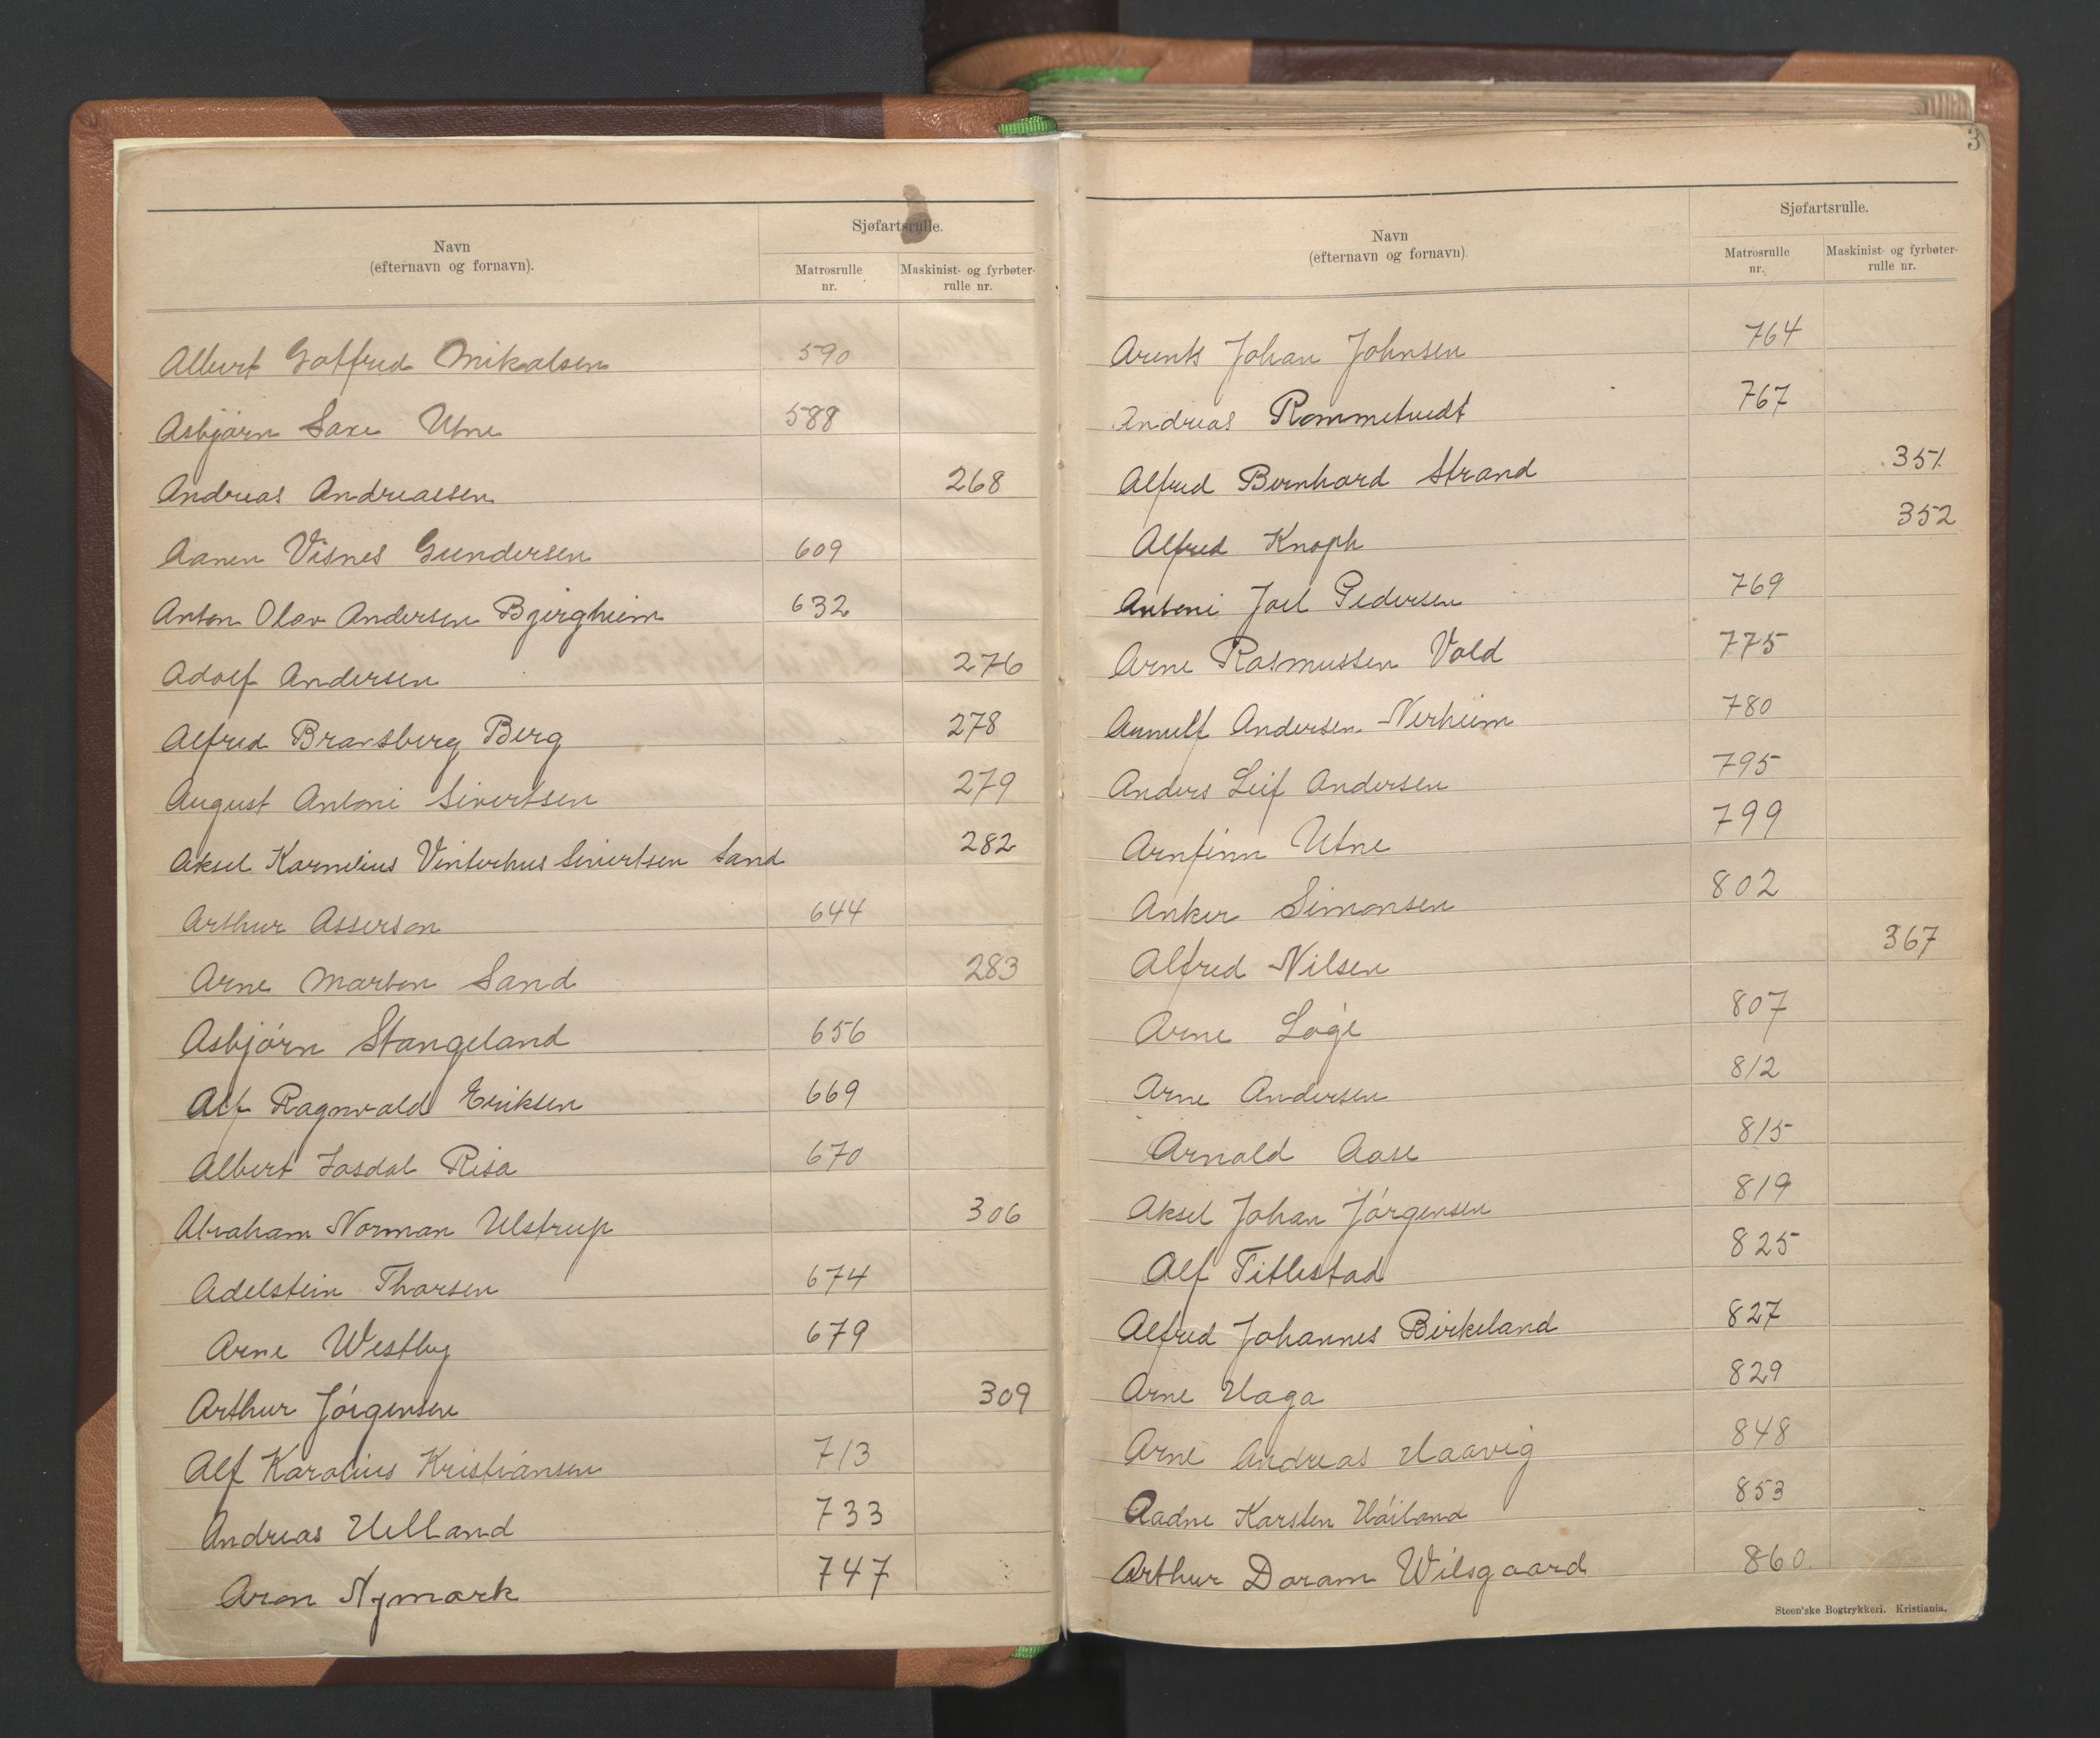 Navn
(efternavn og fornavn).
Sjøfartsrulle.
Matrosrulle nr.
Maskinist- og fyrbøter-rulle nr.
Albert Gotfred Mikalsen 590
Asbjørn Saxe Utne 588
Andreas Andreassen 268
Aanen Visnes Gundersen 609
Anton Olav Andersen Bjergheim 632
Adolf Andersen 276
Alfred Bransberg Berg 278
August Antoni Sivertsen 279
Aksel Kornelius Vinterhus Sivertsen Sand 282
Arthur Asserson 644
Arne Marton Sand 283
Asbjørn Stangeland 656
Alf Ragnvald Eriksen 669
Albert Josdal Risa 670
Abraham Norman Ulstrup 306
Adelstein Thorsen 674
Arne Westby 679
Arthur Jørgensen 309
Alf Karolius Kristiansen 713
Andreas Helland 733
Aron Nymark 747
3
Navn
(efternavn og fornavn)
Sjøfartsrulle.
Matrosrulle nr.
Maskinist- og fyrbøter-rulle nr.
Arents Johan Johnsen 764
Andreas Rommetvedt 767
Alfred Bernhard Strand 351
Alfred Knoph 352
Antoni Joel Pedersen 769
Arne Rasmussen Vold 775
Andersen Nerheim 780
Anders Leif Andersen 795
Arnfinn Utne 799
Anker Simonsen 802
Alfred Nilsen 367
Arne Løge 807
Arne Andersen 812
Arnold Aase 815
Aksel Johan Jørgensen 819
Alf Titlestad 825
Alfred Johannes Birkeland 827
Arne Haga 829
Arne Andreas Haavig 848
Aadne Karsten Høiland 853
Arthur Doram Wilsgaard 860
Steen'ske Bogtrykkeri. Kristiania.